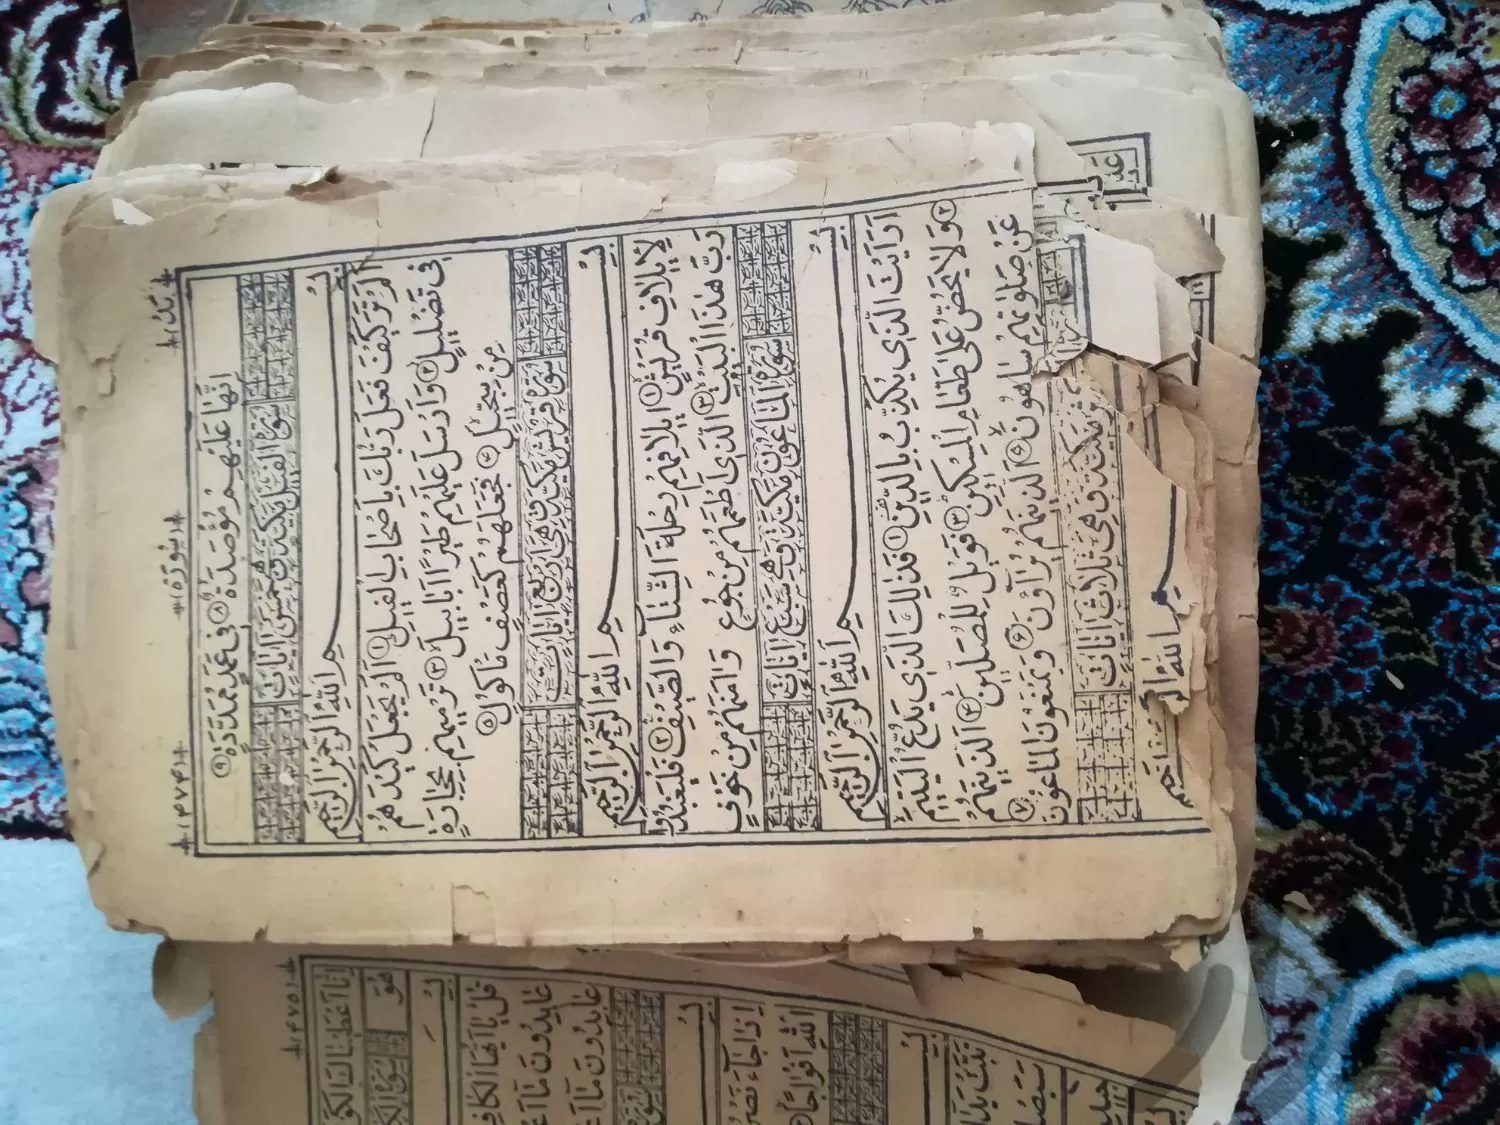 (۴۷۴)
سورة
إِنَّهَا عَلَيْهِمْ مُؤْصَدَةٌ ۸ فِي عَمَدٍ مُمَدَّدَةٍ ۹
سورة الفيل مكية و هى خمس ايات
بسم الله الرحمن الرحيم
أَلَمْ تَرَ كَيْفَ فَعَلَ رَبُّكَ بِأَصْحَابِ الْفِيلِ ۱ أَلَمْ يَجْعَلْ كَيْدَهُمْ
فِي تَضْلِيلٍ ۲ وَأَرْسَلَ عَلَيْهِمْ طَيْرًا أَبَابِيلَ ۳ تَرْمِيهِمْ بِحِجَارَةٍ
مِنْ سِجِّيلٍ ۴ فَجَعَلَهُمْ كَعَصْفٍ مَأْكُولٍ ۵
سورة قريش مكية و هى اربع ايات
بسم الله الرحمن الرحيم
لِإِيلَافِ قُرَيْشٍ ۱ إِيلَافِهِمْ رِحْلَةَ الشِّتَاءِ وَالصَّيْفِ ۲ فَلْيَعْبُدُوا
رَبَّ هٰذَا الْبَيْتِ ۳ الَّذِي أَطْعَمَهُمْ مِنْ جُوعٍ وَآمَنَهُمْ مِنْ خَوْفٍ
سورة الماعون مكية و هى سبع ايات
بسم الله الرحمن الرحيم
أَرَأَيْتَ الَّذِي يُكَذِّبُ بِالدِّينِ ۱ فَذٰلِكَ الَّذِي يَدُعُّ الْيَتِيمَ
۲ وَلَا يَحُضُّ عَلَىٰ طَعَامِ الْمِسْكِينِ ۳ فَوَيْلٌ لِلْمُصَلِّينَ ۴ الَّذِينَ هُمْ
عَنْ صَلٰوتِهِمْ سَاهُونَ ۵ الَّذِينَ هُمْ يُرَاؤُنَ ۶ وَيَمْنَعُونَ الْمَاعُونَ ۷
مكية و هى ثلاث ايات
الله
(۴۷۵)
إِنَّا أَعْطَيْنَاكَ
هُوَ
قُلْ يَا أَيُّهَا
عَابِدُونَ مَا
عَابِدُونَ مَا
إِذَا جَاءَ نَصْرُ
اللهِ أَفْوَاجًا
تَبَّتْ يَدَا
سَيَصْلَىٰ